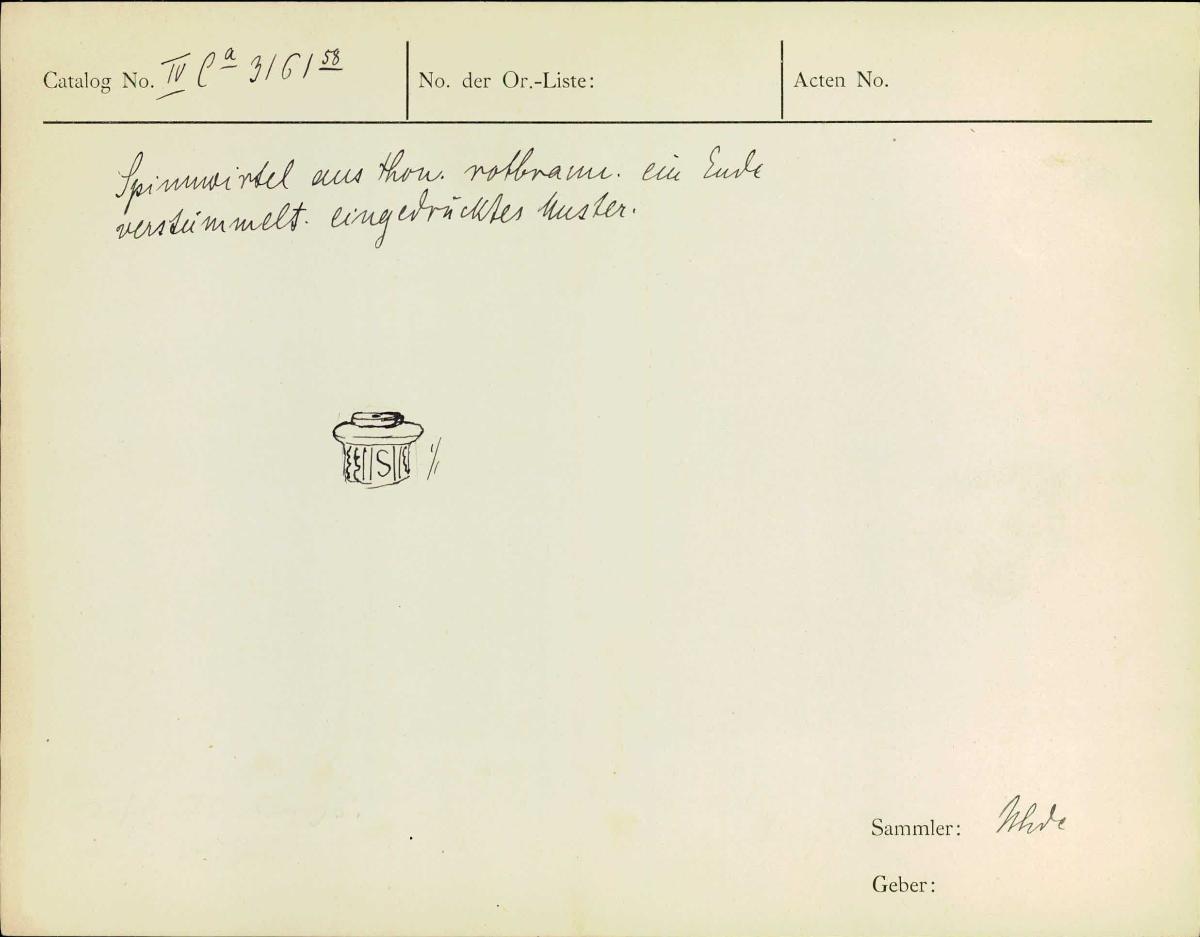 Catalog No. IV Ca 3161 58
No. der Or.-Liste:
Acten No.
Spinnwirtel aus Thon. rotbraun. ein Ende
verstümmelt. eingedrücktes Muster.
S
1/1
Sammler: Uhde
Geber: